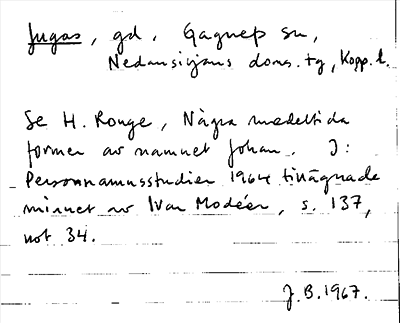 Jugas, gd. Gagnefs sn,
Nedansiljans doms. tg, Kopp. l.
Se H. Ronge, Några medeltida
former av namnet Johan. I:
Personnamnsstudier 1964 tillägnade
minnet av Ivar Modéer, s. 137,
not 34.
J.B. 1967.